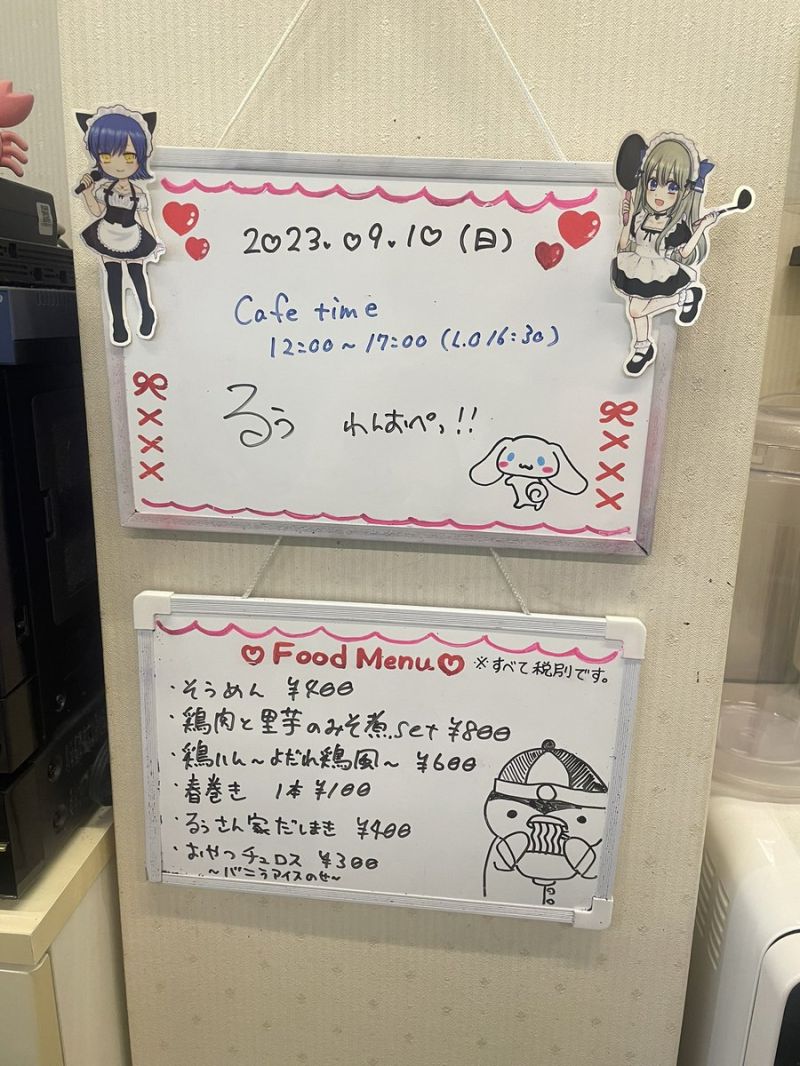 2023.09.10(日)
Cafe time
12:00~17:00(L.O16:30)
るぅ わんおぺっ!!
Food Menu ※すべて税別です。
・そうめん ¥400
・鶏肉と里芋のみそ煮set ¥800
・鶏ハム~よだれ鶏風~ ¥600
・春巻き 1本¥100
・るぅさん家だしまき ¥400
・おやつチュロス ¥300
~バニラアイスのせ~